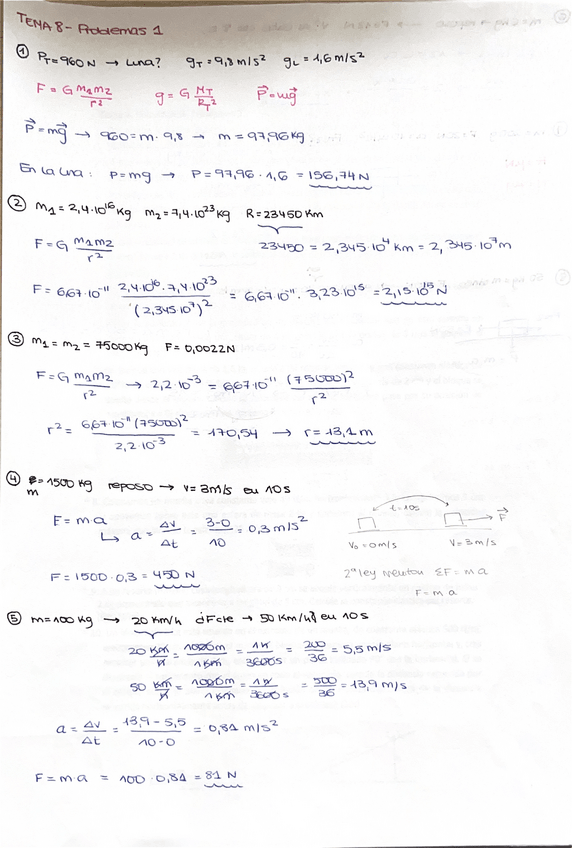 TEMA 8 - Problemas 1
① P_T = 960 N → Luna? g_T = 9,8 m/s² g_L = 1,6 m/s²
F = G m₁m₂/r² g = G M_T/R_T² P⃗ = mg⃗
P⃗ = mg⃗ → 960 = m · 9,8 → m = 97,96 kg
En la Luna : P = mg → P = 97,96 · 1,6 = 156,74 N
② m₁ = 2,4·10¹⁶ kg m₂ = 7,4·10²³ kg R = 23450 Km
F = G m₁m₂/r² 23450 = 2,345·10⁴ km = 2,345·10⁷ m
F = 6,67·10⁻¹¹ 2,4·10¹⁶·7,4·10²³/(2,345·10⁷)² = 6,67·10⁻¹¹ · 3,23·10¹⁵ = 2,15·10¹⁵ N
③ m₁ = m₂ = 75000 Kg F = 0,0022 N
F = G m₁m₂/r² → 2,2·10⁻³ = 6,67·10⁻¹¹ (75000)²/r²
r² = 6,67·10⁻¹¹ (75000)²/2,2·10⁻³ = 170,54 → r = 13,1 m
④ m = 1500 kg reposo → v = 3 m/s en 10 s
F = m a
↳ a = Δv/Δt = 3-0/10 = 0,3 m/s²
t = 10s F⃗
V₀ = 0 m/s V = 3 m/s
F = 1500 · 0,3 = 450 N
2ª ley Newton ΣF = m a
F = m a
⑤ m = 100 kg → 20 Km/h ¿F cte → 50 Km/h? en 10 s
20 Km/h = 1000m/1Km = 1h/3600s = 200/36 = 5,5 m/s
50 Km/h = 1000m/1Km = 1h/3600s = 500/36 = 13,9 m/s
a = Δv/Δt = 13,9 - 5,5/10-0 = 0,81 m/s²
F = m·a = 100 · 0,81 = 81 N